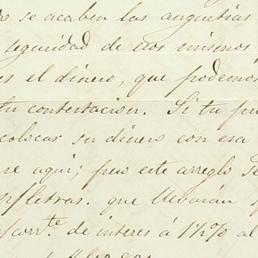 se acaben las angustias
seguridad de esos mismos
es el dinero, que podemos
tu contestacion. Si tu
colocar su dinero con esa
aqui; pues este arreglo
letras. que llevarán
corr.te de interés á 1½% al